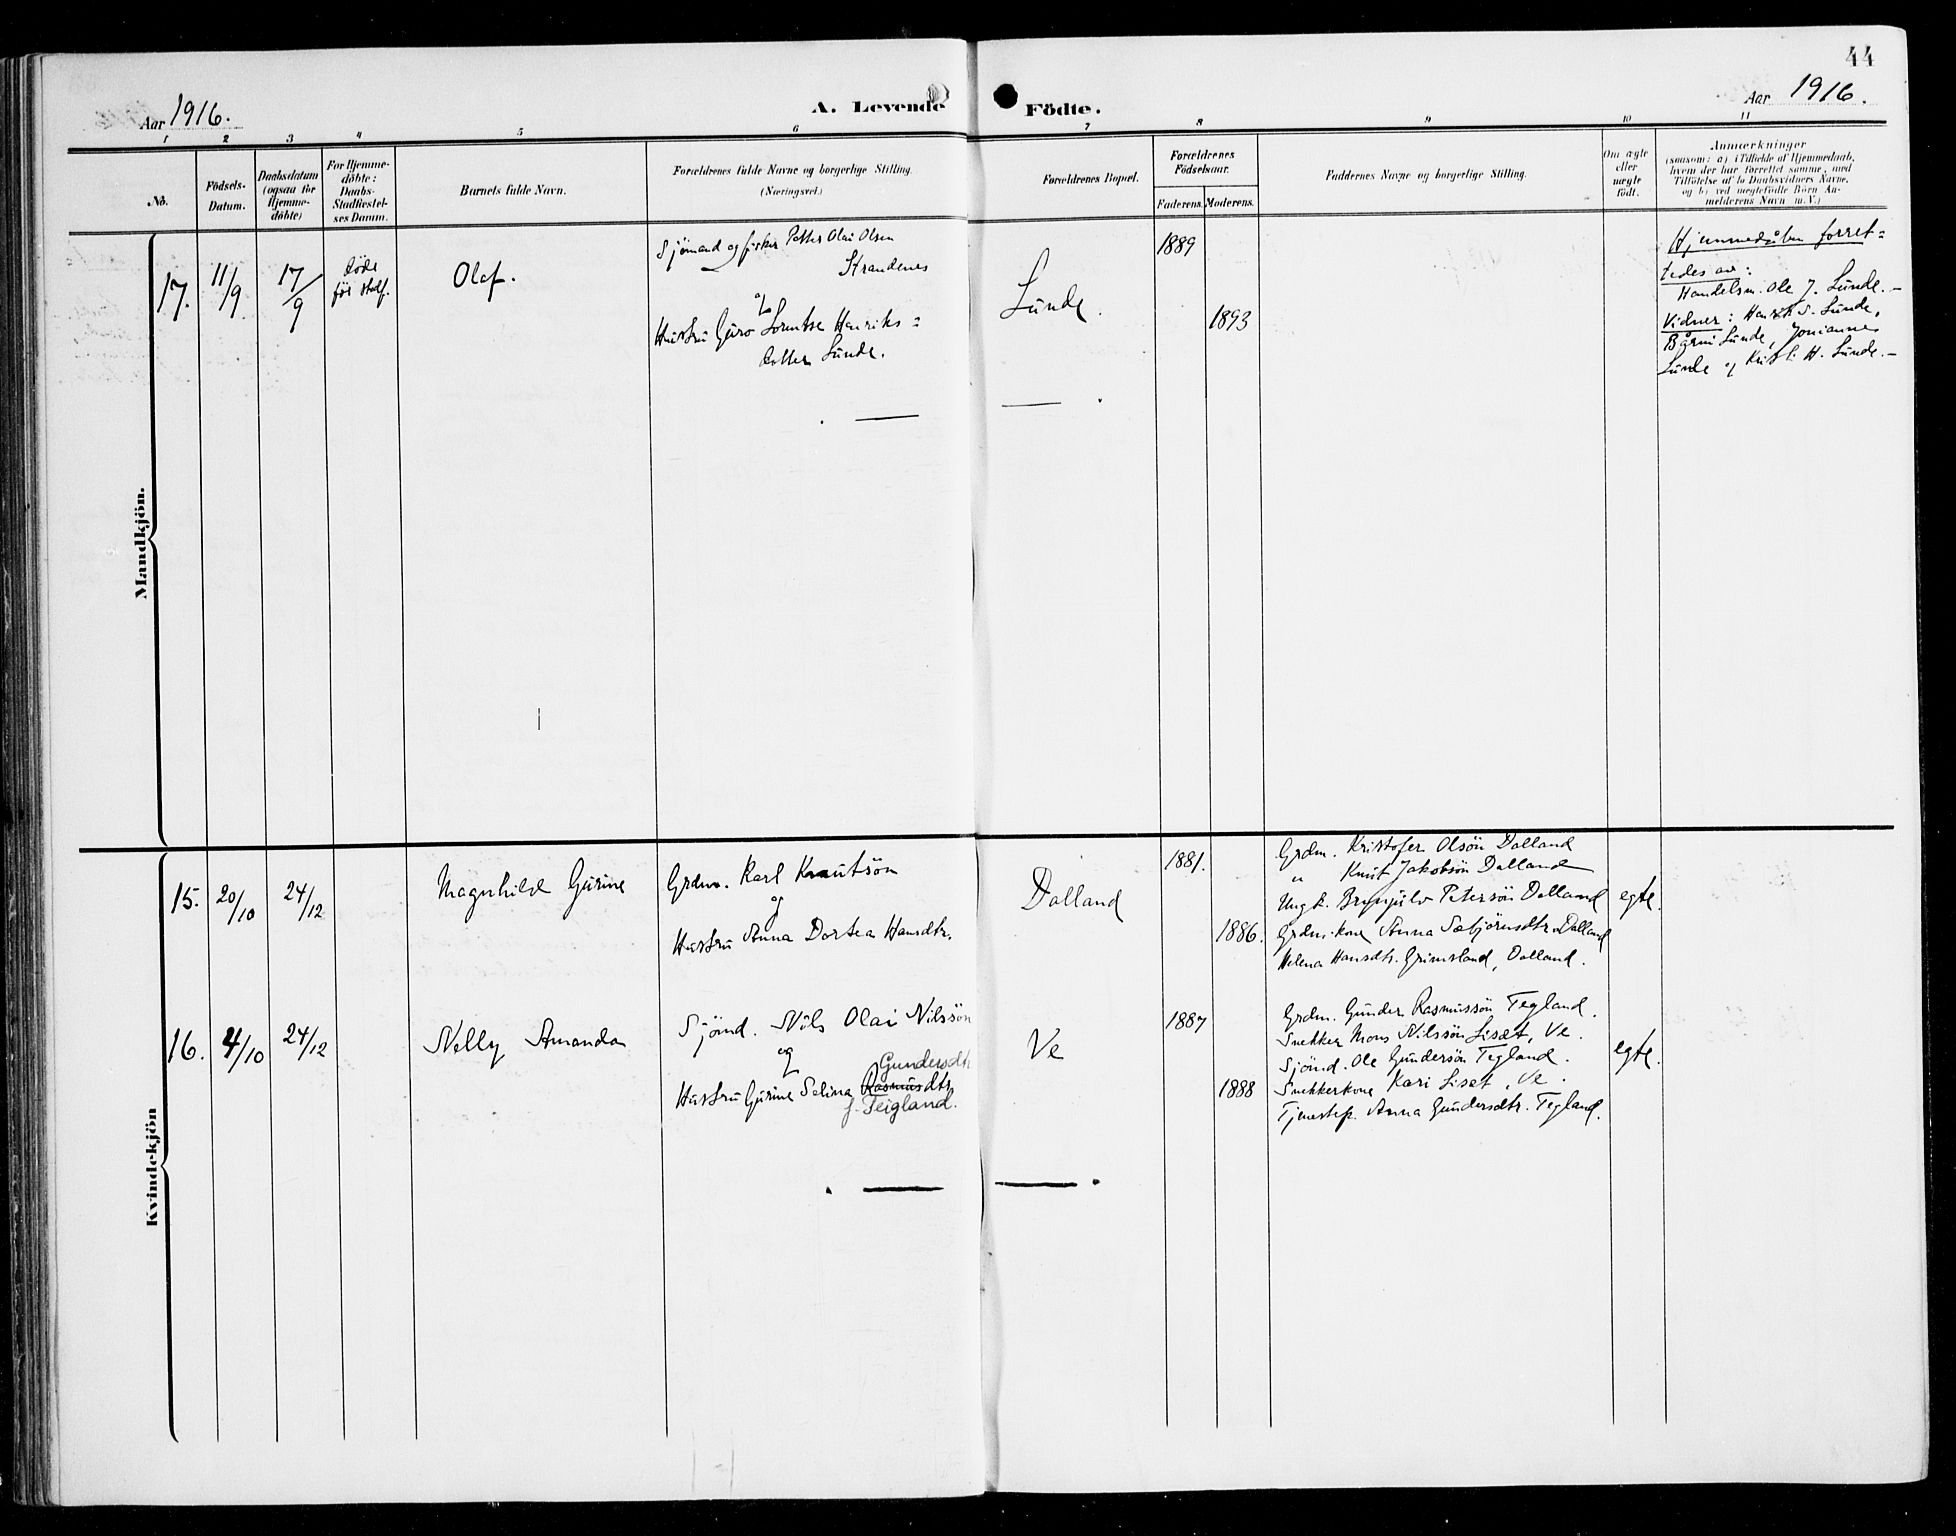 44
Aar 1916.
A. Levende Födte.
Aar 1916.
1 2 3 4 5 6 7 8 9 10 11
No.
Födsels-
Datum.
Daabsdatum
(ogsaa for
Hjemme-
döbte)
For Hjemme-
döbte:
Daabs-
Stadfæstel-
ses Datum.
Barnets fulde Navn.
Forældrenes fulde Navne og borgerlige Stilling.
(Næringsvei.)
Forældrenes Bopæl.
Forældrenes
Födselsaar.
Faderens. Moderens.
Faddernes Navne og borgerlige Stilling.
Om ægte
eller
uægte
födt.
Anmærkninger
(saasom: a) i Tilfælde af Hjemmedaab,
hvem der har forrettet samme, med
Tilföielse af to Daabsvidners Navne,
og b) ved uægtefödte Börn An-
melderens Navn m. V.)
Mandkjön.
17.
11/9
17/9
döde
før stadf.
Olaf.
Sjømand og fisker Petter Olai Olsen
Strandenes
og
Hustru Guro Lorentse Henriks=
dotter Lunde.
Lunde.
1889
1893
Hjemmedåben forret=
tedes av:
Handelsm. Ole J. Lunde.-
Vidner: S. Lunde,
Lunde, Johannes
Lunde og H. Lunde.-
Kvindekjön
15.
20/10
24/12
Magnhild Gurine
Grdm. Karl Knutsön
og
Hustru Anna Dortea Hansdtr.
Dalland
1881.
1886.
Grdm. Kristofer Olsön Dalland
" Knut Jakobsön Dalland
Ungk. Brynjulv Petersön Dalland
Grdm.kone Anna Sebjörnsdtr. Dalland
Helena Hansdtr. Grimsland, Dalland.
egte.
16.
4/10
24/12
Nelly Amanda
Sjömd. Nils Olai Nilssön
og
Gundersdtr
Hustru Gurine Selina Rasmusdtr.
f. Teigland.
Ve
1887
1888
Grdm. Gunder Rasmussön Tegland.
Snekker Mons Nilssön Liset, Ve.
Sjömd. Ole Gundersön Tegland.
Snekkerkone Kari Liset, Ve.
Tjenestep. Anna Gundersdtr. Tegland.
egte.